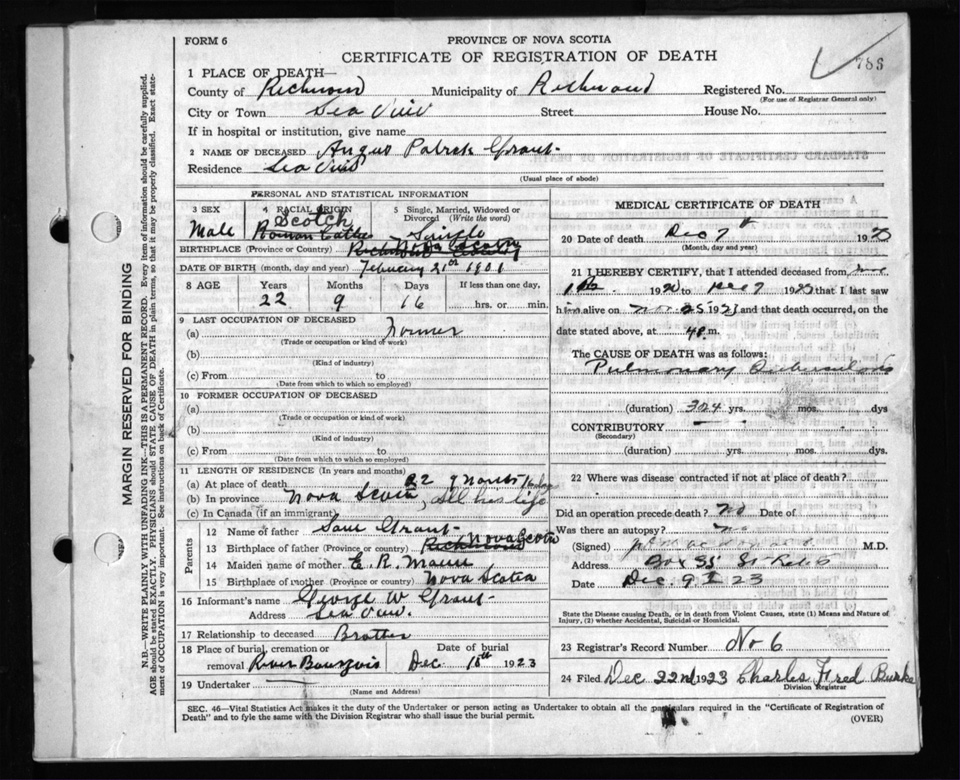 FORM 6
PROVINCE OF NOVA SCOTIA
CERTIFICATE OF REGISTRATION OF DEATH
783
1 PLACE OF DEATH—
County of Richmond Municipality of Richmond Registered No.
(For use of Registrar General only)
City or Town Sea View Street House No.
If in hospital or institution, give name
2 NAME OF DECEASED Angus Patrick Grant
Residence Sea View
(Usual place of abode)
PERSONAL AND STATISTICAL INFORMATION
3 SEX 4 RACIAL ORIGIN 5 Single, Married, Widowed or Divorced (Write the word)
Male Scotch Roman Catho Single
BIRTHPLACE (Province or Country) Nova Scotia
DATE OF BIRTH (month, day and year) February 21st 1901
8 AGE Years Months Days If less than one day,
22 9 16 hrs. or min.
9 LAST OCCUPATION OF DECEASED
(a) Farmer
(Trade or occupation or kind of work)
(b)
(Kind of industry)
(c) From to
(Date from which to which so employed)
10 FORMER OCCUPATION OF DECEASED
(a)
(Trade or occupation or kind of work)
(b)
(Kind of industry)
(c) From to
(Date from which to which so employed)
11 LENGTH OF RESIDENCE (In years and months)
(a) At place of death 22 9 months 16 days
(b) In province Nova Scotia, All his life
(c) In Canada (if an immigrant)
Parents
12 Name of father Grant
13 Birthplace of father (Province or country) Richmond Nova Scotia
14 Maiden name of mother E. R.
15 Birthplace of mother (Province or country) Nova Scotia
16 Informant's name George W Grant
Address Sea View.
17 Relationship to deceased Brother
18 Place of burial, cremation or removal River Bourgeois
Date of burial Dec 10th 1923
19 Undertaker
(Name and Address)
MEDICAL CERTIFICATE OF DEATH
20 Date of death Dec 7th 1923
(Month, day and year)
21 I HEREBY CERTIFY, that I attended deceased from
192 to Dec 7 1923 that I last saw
him alive on Nov 25 1923 and that death occurred, on the
date stated above, at 4 P. m.
The CAUSE OF DEATH was as follows:
Pulmonary Tuberculosis
(duration) 3 or 4 yrs. mos. dys
CONTRIBUTORY
(Secondary)
(duration) yrs. mos. dys.
22 Where was disease contracted if not at place of death?
Did an operation precede death? No Date of
Was there an autopsy? No
(Signed) M.D.
Address St Peters
Date Dec. 9th 23
State the Disease causing Death, or in death from Violent Causes, state (1) Means and Nature of
Injury, (2) whether Accidental, Suicidal or Homicidal.
23 Registrar's Record Number No 6
24 Filed Dec 22nd 1923 Charles Fred Burke
Division Registrar
SEC. 46—Vital Statistics Act makes it the duty of the Undertaker or person acting as Undertaker to obtain all the particulars required in the "Certificate of Registration of
Death" and to fyle the same with the Division Registrar who shall issue the burial permit.
(OVER)
MARGIN RESERVED FOR BINDING
N.B.—WRITE PLAINLY WITH UNFADING INK—THIS IS A PERMANENT RECORD. Every item of information should be carefully supplied.
AGE should be stated EXACTLY. PHYSICIANS should STATE CAUSE OF DEATH in plain terms, so that it may be properly classified. Exact state-
ment of OCCUPATION is very important. See instructions on back of Certificate.